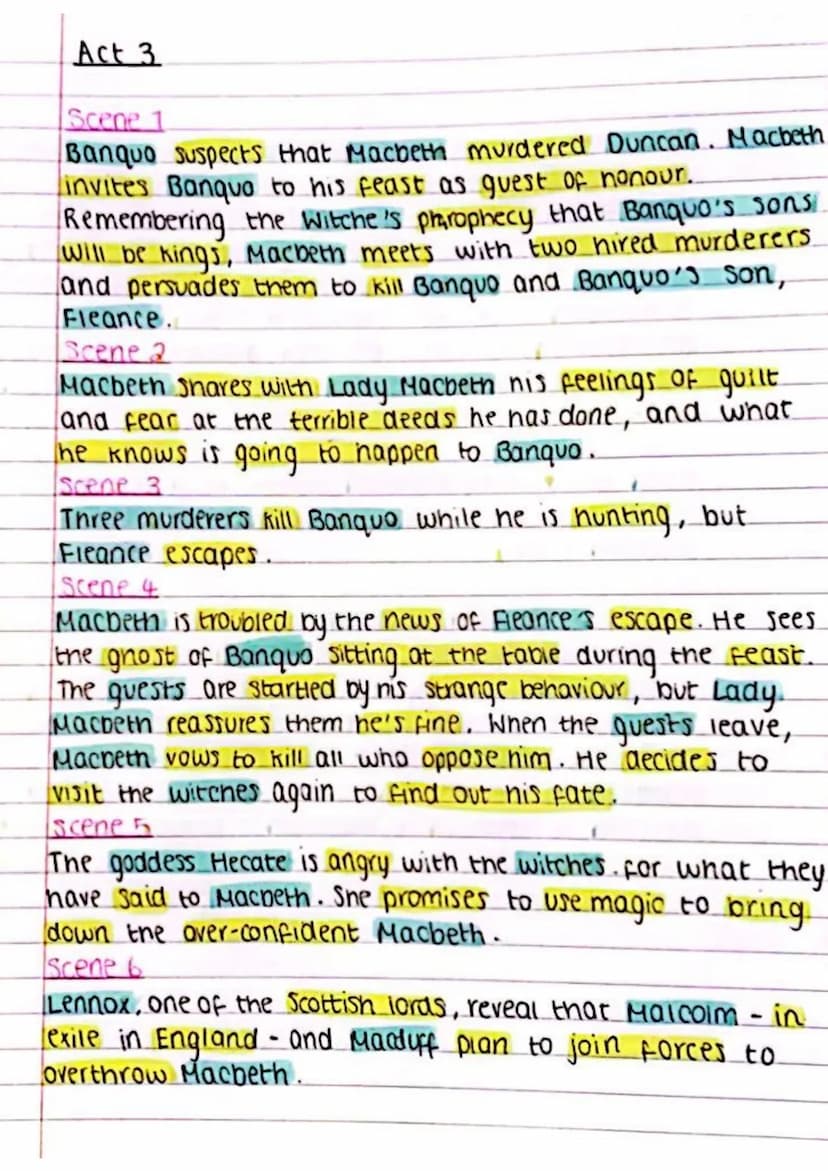 Act 3
Scene 1
Banquo suspects that Macbeth murdered Duncan. Macbeth
invites Banquo to his feast as guest of honour.
Remembering the Witche's phrophecy that Banquo's sons
will be kings, Macbeth meets with two hired murderers
and persuades them to kill Banquo and Banquo's son,
Fleance.
Scene 2
Macbeth shares with Lady Macbeth his feelings of guilt
and fear at the terrible deeds he has done, and what
he knows is going to happen to Banquo.
Scene 3
Three murderers kill Banquo while he is hunting, but
Fleance escapes.
Scene 4
Macbeth is troubled by the news of Fleance's escape. He sees
the ghost of Banquo sitting at the table during the feast.
The guests are startled by his strange behaviour, but Lady
Macbeth reassures them he's fine. When the guests leave,
Macbeth vows to kill all who oppose him. He decides to
visit the witches again to find out his fate.
Scene 5
The goddess Hecate is angry with the witches for what they
have said to Macbeth. She promises to use magic to bring
down the over-confident Macbeth.
Scene 6
Lennox, one of the Scottish lords, reveal that Malcolm - in
exile in England - and Macduff plan to join forces to
overthrow Macbeth.